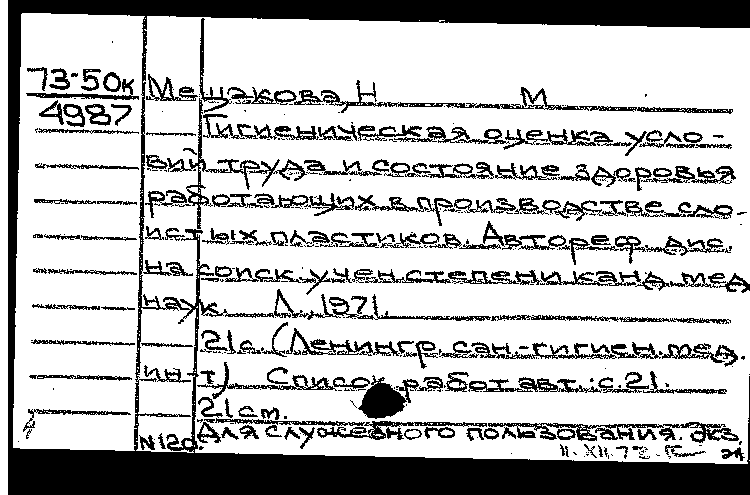 73-50к Мешакова, Н М
4987
Гигиеническая оценка усло-
вий труда и состояние здоровья
работающих в производстве сло-
истых пластиков. Автореф. дис.
на соиск. учен. степени канд. мед.
наук. Л., 1971.
21 с. (Ленингр. сан.-гигиен. мед.
ин-т) Список работ авт.: с. 21.
21 см.
Для служебного пользования. Экз.
N 120.